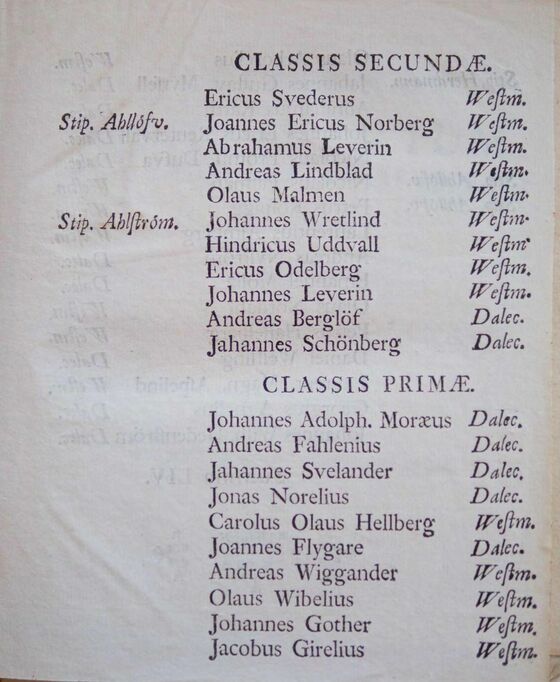 CLASSIS SECUNDÆ.
Ericus Svederus Weſtm.
Stip. Ahllöfv. Joannes Ericus Norberg Weſtm.
Abrahamus Leverin Weſtm.
Andreas Lindblad Weſtm.
Olaus Malmen Weſtm.
Stip. Ahlſtröm. Johannes Wretlind Weſtm.
Hindricus Uddvall Weſtm.
Ericus Odelberg Weſtm.
Johannes Leverin Weſtm.
Andreas Berglöf Dalec.
Jahannes Schönberg Dalec.
CLASSIS PRIMÆ.
Johannes Adolph. Moræus Dalec.
Andreas Fahlenius Dalec.
Jahannes Svelander Dalec.
Jonas Norelius Dalec.
Carolus Olaus Hellberg Weſtm.
Joannes Flygare Dalec.
Andreas Wiggander Weſtm.
Olaus Wibelius Weſtm.
Johannes Gother Weſtm.
Jacobus Girelius Weſtm.